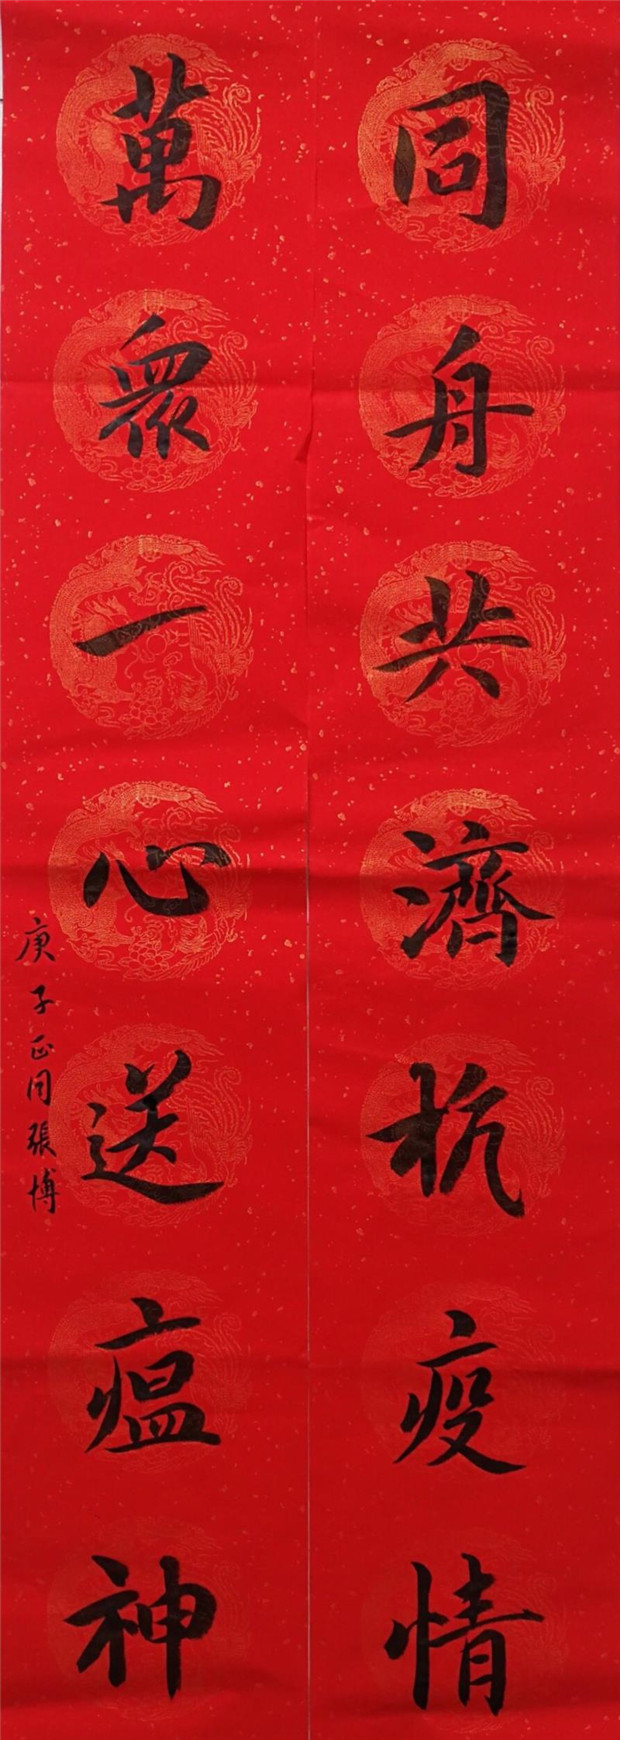 同舟共濟抗疫情
萬衆一心送瘟神
庚子正月張博